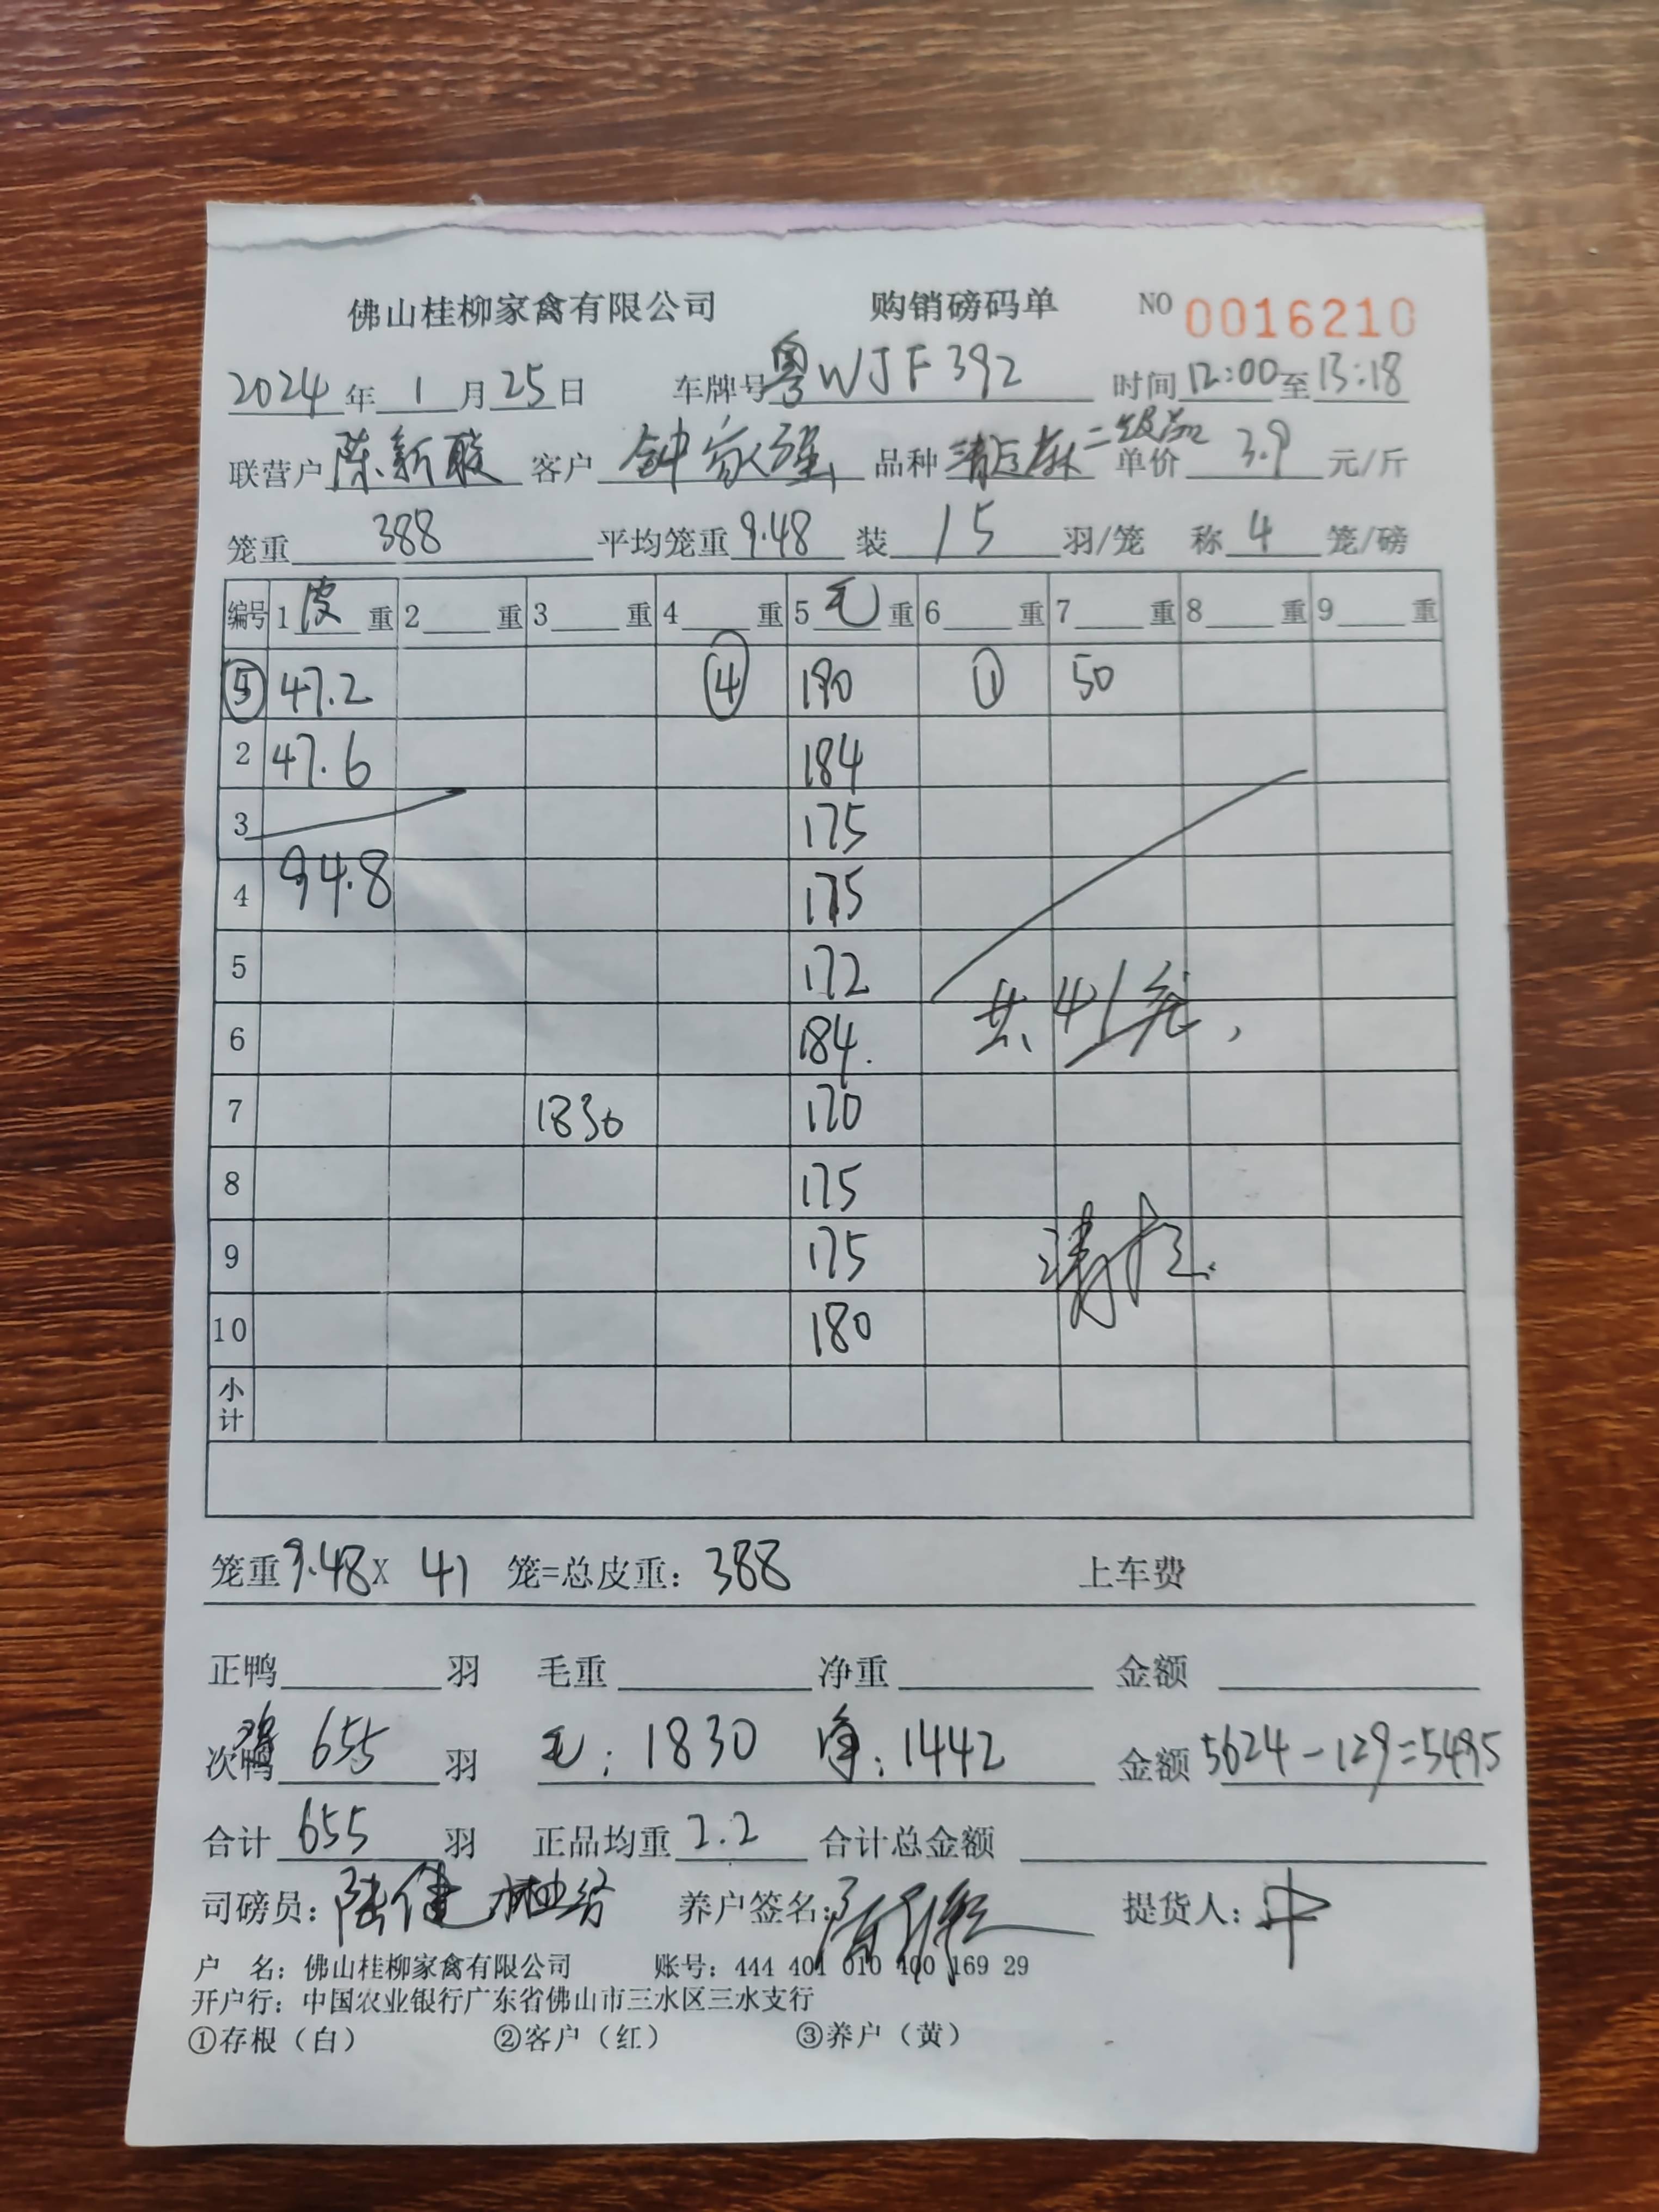 佛山桂柳家禽有限公司 购销磅码单 NO 0016210
2024年1月25日 车牌号粤WJF392 时间12:00至13:18
联营户陈新 客户钟家强 品种清远麻二级 单价3.9元/斤
笼重388 平均笼重9.48 装15羽/笼 称4笼/磅
编号 1皮重 2重 3重 4重 5毛重 6重 7重 8重 9重
⑤ 47.2 ④ 190 ① 50
2 47.6 184
3 175
4 94.8 175
5 172
6 184. 共41笼,
7 1830 170
8 175
9 175
10 180
小计
笼重9.48X 41 笼=总皮重:388 上车费
正鸭 羽 毛重 净重 金额
次鸡 655 羽 毛:1830 净:1442 金额5624-129=5495
合计655羽 正品均重2.2 合计总金额
司磅员:陆健 养户签名: 提货人:
户 名:佛山桂柳家禽有限公司 账号:444 401 010 400 169 29
开户行:中国农业银行广东省佛山市三水区三水支行
①存根(白) ②客户(红) ③养户(黄)